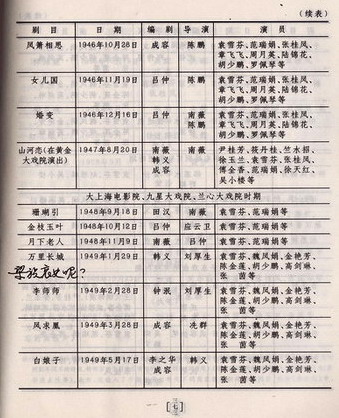 (续表)
剧目 日期 编剧 导演 演员
凤箫相思 1946年10月28日 成容 陈鹏 袁雪芬、范瑞娟、张桂凤、
章飞飞、周月英、陆锦花、
胡少鹏、罗佩琴等
女儿国 1946年11月19日 吕仲 陈鹏 袁雪芬、范瑞娟、张桂凤、
章飞飞、周月英、陆锦花、
胡少鹏、罗佩琴等
婚变 1946年12月16日 吕仲 南薇 袁雪芬、范瑞娟、张桂凤、
陈鹏 章飞飞、周月英、陆锦花、
胡少鹏、罗佩琴等
山河恋(在黄金 1947年8月20日 南薇 南薇 尹桂芳、筱丹桂、竺水招、
大戏院演出) 韩义 韩义 徐玉兰、袁雪芬、张桂凤、
成容 傅全香、范瑞娟、徐天红、
吴小楼等
大上海电影院、九星大戏院、兰心大戏院时期
珊瑚引 1948年9月18日 田汉 南薇 袁雪芬、范瑞娟等
金枝玉叶 1948年10月12日 吕仲 应云卫 袁雪芬、范瑞娟等
月下老人 1948年11月9日 南薇 吕仲 袁雪芬、范瑞娟等
万里长城 1949年1月29日 韩义 刘厚生 袁雪芬、魏凤娟、金艳芳、
陈金莲、胡少鹏、高剑琳、
张茵等
李师师 1949年2月28日 钟泯 刘厚生 袁雪芬、魏凤娟、金艳芳、
陈金莲、胡少鹏、高剑琳、
张茵等
凤求凰 1949年3月28日 成容 冼群 袁雪芬、魏凤娟、金艳芳、
陈金莲、胡少鹏、高剑琳、
张茵等
白娘子 1949年5月17日 李之华 韩义 袁雪芬、魏凤娟、金艳芳、
成容 陈金莲、胡少鹏、高剑琳、
张茵等